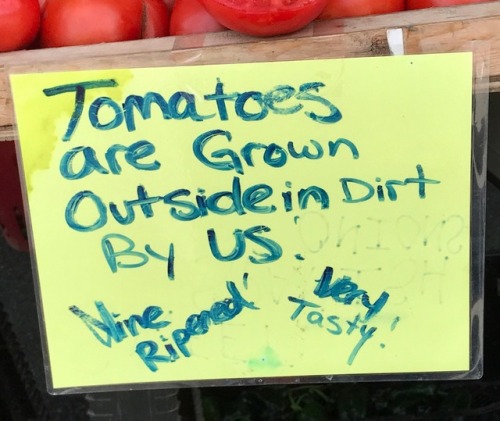 Tomatoes
are Grown
Outside in Dirt
By US.
Vine
Ripened!
Very
Tasty!